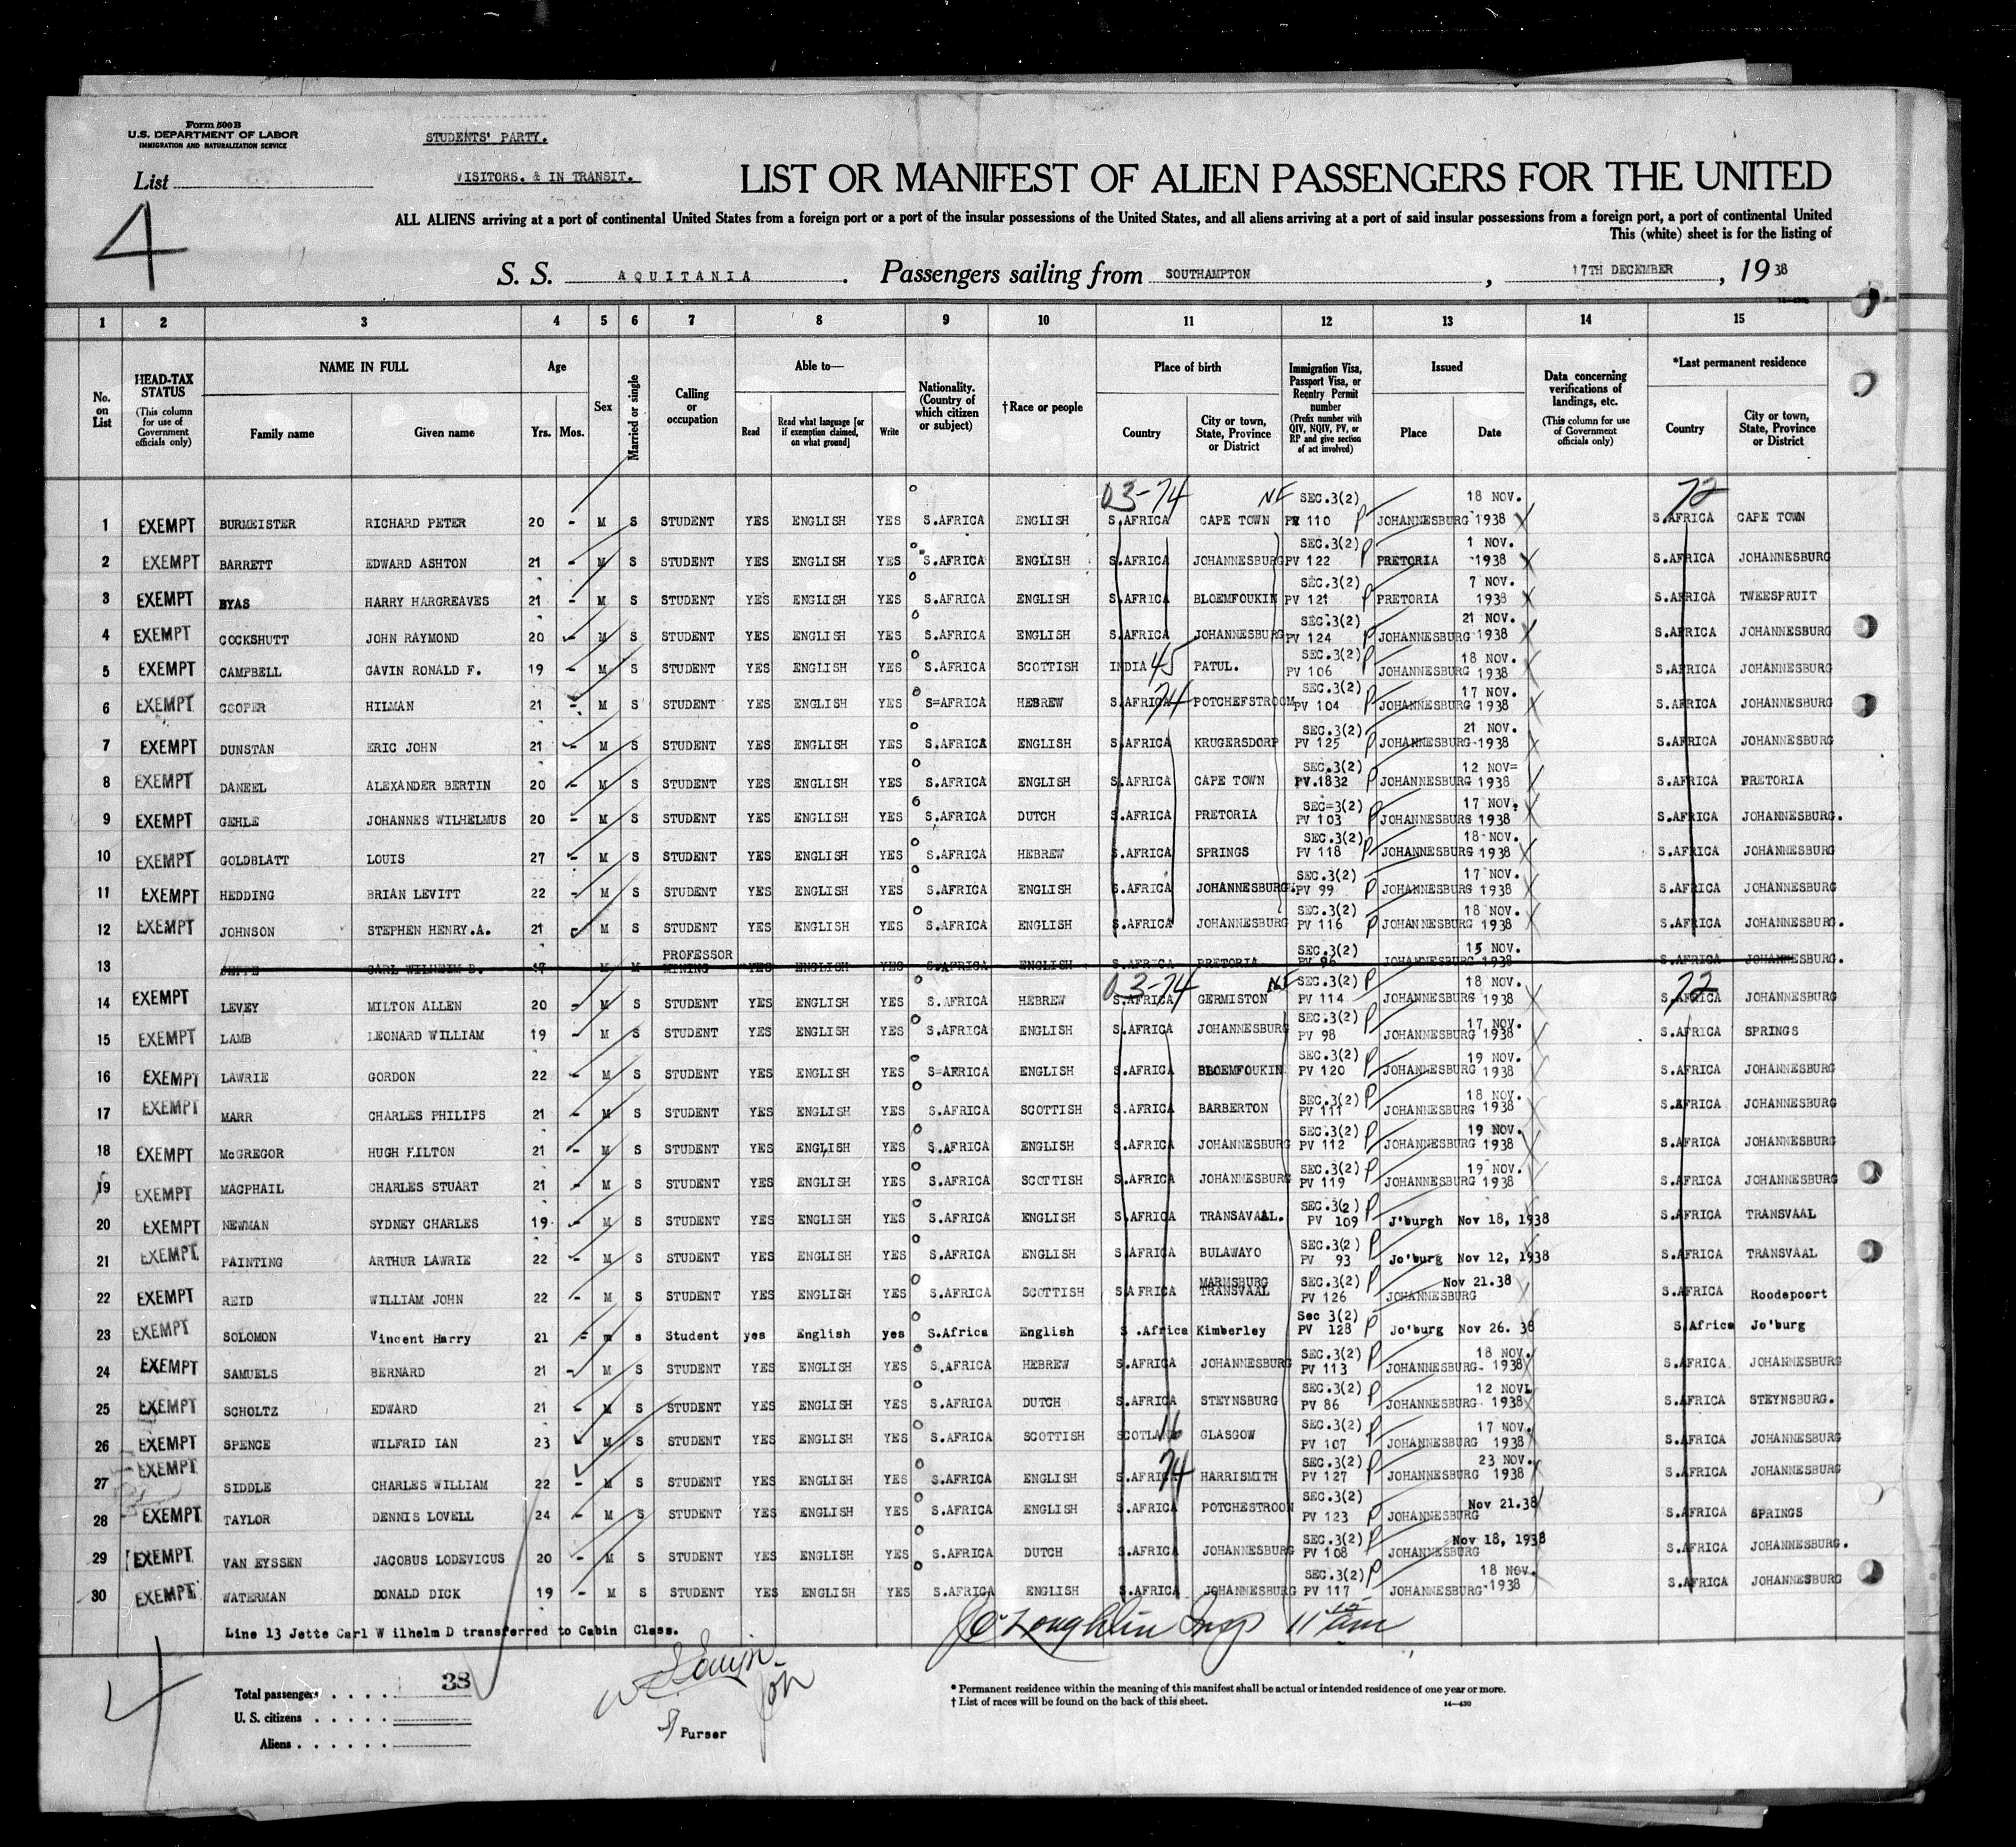 Form 500B
U.S. DEPARTMENT OF LABOR
IMMIGRATION AND NATURALIZATION SERVICE
STUDENTS' PARTY.
VISITORS. & IN TRANSIT.
List
4
LIST OR MANIFEST OF ALIEN PASSENGERS FOR THE UNITED
ALL ALIENS arriving at a port of continental United States from a foreign port or a port of the insular possessions of the United States, and all aliens arriving at a port of said insular possessions from a foreign port, a port of continental United
This (white) sheet is for the listing of
S. S. AQUITANIA. Passengers sailing from SOUTHAMPTON, 17TH DECEMBER, 1938
1 2 3 4 5 6 7 8 9 10 11 12 13 14 15
No. on List
HEAD-TAX STATUS (This column for use of Government officials only)
NAME IN FULL Family name Given name
Age Yrs. Mos.
Sex
Married or single
Calling or occupation
Able to— Read Read what language [or if exemption claimed, on what ground] Write
Nationality. (Country of which citizen or subject)
†Race or people
Place of birth Country City or town, State, Province or District
Immigration Visa, Passport Visa, or Reentry Permit number (Prefix number with QIV, NQIV, PV, or RP and give section of act involved)
Issued Place Date
Data concerning verifications of landings, etc. (This column for use of Government officials only)
*Last permanent residence Country City or town, State, Province or District
03-74 NF 72
1 EXEMPT BURMEISTER RICHARD PETER 20 - M S STUDENT YES ENGLISH YES S.AFRICA ENGLISH S.AFRICA CAPE TOWN SEC.3(2) PV 110 P JOHANNESBURG 18 NOV. 1938 S.AFRICA CAPE TOWN
2 EXEMPT BARRETT EDWARD ASHTON 21 - M S STUDENT YES ENGLISH YES S.AFRICA ENGLISH S.AFRICA JOHANNESBURG SEC.3(2) PV 122 P PRETORIA 1 NOV. 1938 S.AFRICA JOHANNESBURG
3 EXEMPT BYAS HARRY HARGREAVES 21 - M S STUDENT YES ENGLISH YES S.AFRICA ENGLISH S.AFRICA BLOEMFOUKIN SEC.3(2) PV 121 P PRETORIA 7 NOV. 1938 S.AFRICA TWEESPRUIT
4 EXEMPT COCKSHUTT JOHN RAYMOND 20 - M S STUDENT YES ENGLISH YES S.AFRICA ENGLISH S.AFRICA JOHANNESBURG SEC.3(2) PV 124 P JOHANNESBURG 21 NOV. 1938 S.AFRICA JOHANNESBURG
5 EXEMPT CAMPBELL GAVIN RONALD F. 19 - M S STUDENT YES ENGLISH YES S.AFRICA SCOTTISH INDIA 45 PATUL. SEC.3(2) PV 106 P JOHANNESBURG 18 NOV. 1938 S.AFRICA JOHANNESBURG
6 EXEMPT COOPER HILMAN 21 - M S STUDENT YES ENGLISH YES S=AFRICA HEBREW S.AFRICA 74 POTCHEFSTROOM SEC.3(2) PV 104 P JOHANNESBURG 17 NOV. 1938 S.AFRICA JOHANNESBURG
7 EXEMPT DUNSTAN ERIC JOHN 21 - M S STUDENT YES ENGLISH YES S.AFRICA ENGLISH S.AFRICA KRUGERSDORP SEC.3(2) PV 125 P JOHANNESBURG 21 NOV. 1938 S.AFRICA JOHANNESBURG
8 EXEMPT DANEEL ALEXANDER BERTIN 20 - M S STUDENT YES ENGLISH YES S.AFRICA ENGLISH S.AFRICA CAPE TOWN SEC.3(2) PV.1832 P JOHANNESBURG 12 NOV= 1938 S.AFRICA PRETORIA
9 EXEMPT GEHLE JOHANNES WILHELMUS 20 - M S STUDENT YES ENGLISH YES S.AFRICA DUTCH S.AFRICA PRETORIA SEC=3(2) PV 103 P JOHANNESBURG 17 NOV. 1938 S.AFRICA JOHANNESBURG.
10 EXEMPT GOLDBLATT LOUIS 27 - M S STUDENT YES ENGLISH YES S.AFRICA HEBREW S.AFRICA SPRINGS SEC.3(2) PV 118 P JOHANNESBURG 18 NOV. 1938 S.AFRICA JOHANNESBURG
11 EXEMPT HEDDING BRIAN LEVITT 22 - M S STUDENT YES ENGLISH YES S.AFRICA ENGLISH S.AFRICA JOHANNESBURG. SEC.3(2) PV 99 P JOHANNESBURG 17 NOV. 1938 S.AFRICA JOHANNESBURG
12 EXEMPT JOHNSON STEPHEN HENRY.A. 21 - M S STUDENT YES ENGLISH YES S.AFRICA ENGLISH S.AFRICA JOHANNESBURG SEC.3(2) PV 116 P JOHANNESBURG 18 NOV. 1938 S.AFRICA JOHANNESBURG.
13 JEPPE CARL WILHELM D. 47 M M PROFESSOR MINING YES ENGLISH YES S.AFRICA ENGLISH S.AFRICA PRETORIA SEC.3(2) PV 96 JOHANNESBURG 15 NOV. 1938 S.AFRICA JOHANNESBURG.
03-74 NF 72
14 EXEMPT LEVEY MILTON ALLEN 20 - M S STUDENT YES ENGLISH YES S.AFRICA HEBREW S.AFRICA GERMISTON SEC.3(2) PV 114 P JOHANNESBURG 18 NOV. 1938 S.AFRICA JOHANNESBURG
15 EXEMPT LAMB LEONARD WILLIAM 19 - M S STUDENT YES ENGLISH YES S.AFRICA ENGLISH S.AFRICA JOHANNESBURG SEC.3(2) PV 98 P JOHANNESBURG 17 NOV. 1938 S.AFRICA SPRINGS
16 EXEMPT LAWRIE GORDON 22 - M S STUDENT YES ENGLISH YES S=AFRICA ENGLISH S.AFRICA BLOEMFOUKIN SEC.3(2) PV 120 P JOHANNESBURG 19 NOV. 1938 S.AFRICA JOHANNESBURG
17 EXEMPT MARR CHARLES PHILIPS 21 - M S STUDENT YES ENGLISH YES S.AFRICA SCOTTISH S.AFRICA BARBERTON SEC.3(2) PV 111 P JOHANNESBURG 18 NOV. 1938 S.AFRICA JOHANNESBURG
18 EXEMPT McGREGOR HUGH FILTON 21 - M S STUDENT YES ENGLISH YES S.AFRICA ENGLISH S.AFRICA JOHANNESBURG SEC.3(2) PV 112 P JOHANNESBURG 19 NOV. 1938 S.AFRICA JOHANNESBURG
19 EXEMPT MACPHAIL CHARLES STUART 21 - M S STUDENT YES ENGLISH YES S.AFRICA SCOTTISH S.AFRICA JOHANNESBURG SEC.3(2) PV 119 P JOHANNESBURG 19 NOV. 1938 S.AFRICA JOHANNESBURG
20 EXEMPT NEWMAN SYDNEY CHARLES 19 - M S STUDENT YES ENGLISH YES S.AFRICA ENGLISH S.AFRICA TRANSAVAAL. SEC.3(2) PV 109 P J'burgh Nov 18, 1938 S.AFRICA TRANSVAAL
21 EXEMPT PAINTING ARTHUR LAWRIE 22 - M S STUDENT YES ENGLISH YES S.AFRICA ENGLISH S.AFRICA BULAWAYO SEC.3(2) PV 93 P Jo'burg Nov 12, 1938 S.AFRICA TRANSVAAL
22 EXEMPT REID WILLIAM JOHN 22 - M S STUDENT YES ENGLISH YES S.AFRICA SCOTTISH S.AFRICA MARMSBURG TRANSVAAL SEC.3(2) PV 126 P JOHANNESBURG Nov 21.38 S.AFRICA Roodepoort
23 EXEMPT SOLOMON Vincent Harry 21 - m s Student yes English yes S.Africa English S.Africa Kimberley Sec 3(2) PV 128 P Jo'burg Nov 26. 38 S.Africa Jo'burg
24 EXEMPT SAMUELS BERNARD 21 - M S STUDENT YES ENGLISH YES S.AFRICA HEBREW S.AFRICA JOHANNESBURG SEC.3(2) PV 113 P JOHANNESBURG 18 NOV. 1938 S.AFRICA. JOHANNESBURG
25 EXEMPT SCHOLTZ EDWARD 21 - M S STUDENT YES ENGLISH YES S.AFRICA DUTCH S.AFRICA STEYNSBURG SEC.3(2) PV 86 P JOHANNESBURG 12 NOV. 1938 S.AFRICA STEYNSBURG.
26 EXEMPT SPENCE WILFRID IAN 23 M S STUDENT YES ENGLISH YES S.AFRICA SCOTTISH SCOTLAND 16 GLASGOW SEC.3(2) PV 107 P JOHANNESBURG 17 NOV. 1938 S.AFRICA JOHANNESBURG
27 EXEMPT SIDDLE CHARLES WILLIAM 22 - M S STUDENT YES ENGLISH YES S.AFRICA ENGLISH S.AFRICA 74 HARRISMITH SEC.3(2) PV 127 P JOHANNESBURG 23 NOV. 1938 S.AFRICA JOHANNESBURG
28 EXEMPT TAYLOR DENNIS LOVELL 24 - M S STUDENT YES ENGLISH YES S.AFRICA ENGLISH S.AFRICA POTCHESTROON SEC.3(2) PV 123 P JOHANNESBURG Nov 21.38 S.AFRICA SPRINGS
29 EXEMPT VAN EYSSEN JACOBUS LODEVICUS 20 - M S STUDENT YES ENGLISH YES S.AFRICA DUTCH S.AFRICA JOHANNESBURG SEC.3(2) PV 108 P JOHANNESBURG Nov 18, 1938 S.AFRICA JOHANNESBURG.
30 EXEMPT WATERMAN DONALD DICK 19 - M S STUDENT YES ENGLISH YES S.AFRICA ENGLISH S.AFRICA JOHANNESBURG SEC.3(2) PV 117 P JOHANNESBURG 18 NOV. 1938 S.AFRICA JOHANNESBURG
Line 13 Jette Carl W ilhelm D transferred to Cabin Class.
4
Total passengers . . . . 38
U. S. citizens . . . . .
Aliens . . . . . .
Purser
* Permanent residence within the meaning of this manifest shall be actual or intended residence of one year or more.
† List of races will be found on the back of this sheet.
14—430